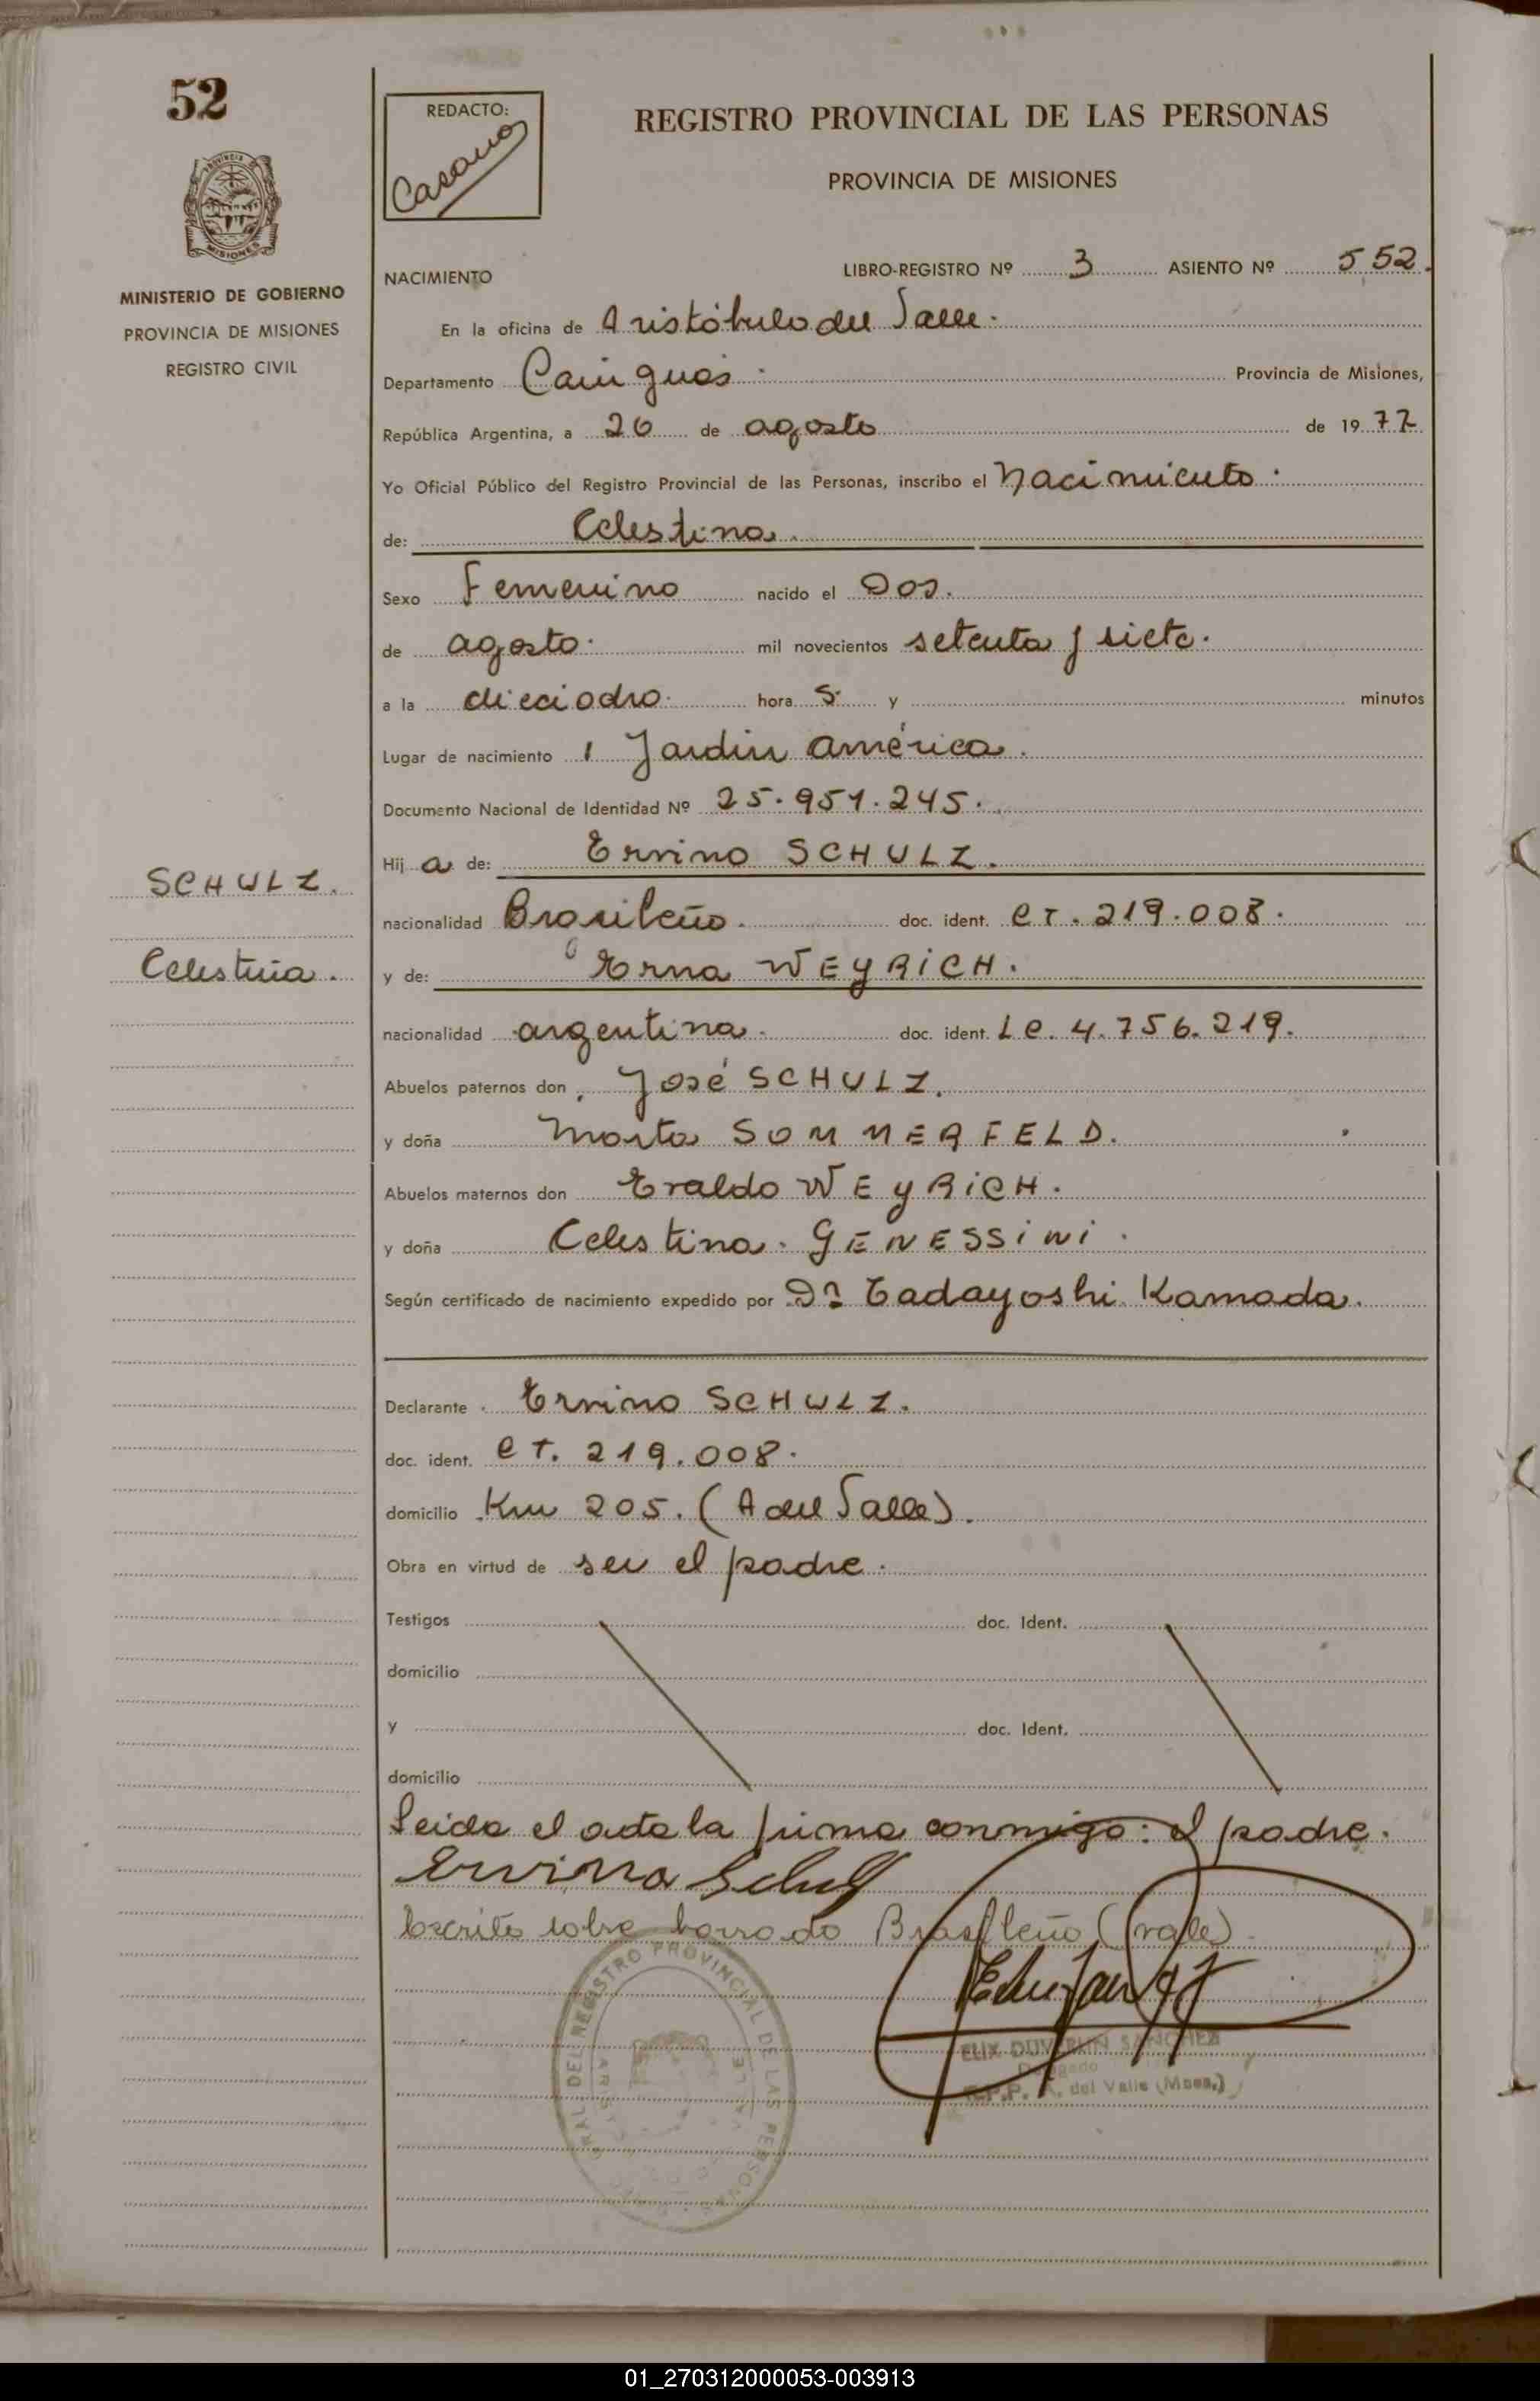 52
REDACTO:
Casano
REGISTRO PROVINCIAL DE LAS PERSONAS
PROVINCIA DE MISIONES
MISIONES
MINISTERIO DE GOBIERNO
PROVINCIA DE MISIONES
REGISTRO CIVIL
NACIMIENTO
LIBRO-REGISTRO Nº 3 ASIENTO Nº 552.
En la oficina de Aristóbulo del Valle.
Departamento Cainguás. Provincia de Misiones,
República Argentina, a 26 de agosto de 1977
Yo Oficial Público del Registro Provincial de las Personas, inscribo el Nacimiento.
de: Celestina.
Sexo Femenino nacido el Dos.
de agosto. mil novecientos setenta y siete.
a la dieciocho. hora s. y minutos
Lugar de nacimiento Jardín América.
Documento Nacional de Identidad Nº 25.951.245.
Hij a de: Ervino SCHULZ.
SCHULZ.
nacionalidad Brasileño. doc. ident. C I. 219.008.
Celestina.
y de: Erna WEYRICH.
nacionalidad argentina. doc. ident. L C. 4.756.219.
Abuelos paternos don José SCHULZ.
y doña Marta SOMMERFELD.
Abuelos maternos don Eraldo WEYRICH.
y doña Celestina. GENESSINI.
Según certificado de nacimiento expedido por Dr. Tadayoshi Kamada.
Declarante Ervino SCHULZ.
doc. ident. C I. 219.008.
domicilio Km 205. (A del Valle).
Obra en virtud de ser el padre.
Testigos doc. Ident.
domicilio
y doc. Ident.
domicilio
Leida el acta la firma conmigo: el padre.
Ervino Schulz
Escrito sobre borrado Brasileño (vale).
ELIX DUVERLIN SANCHEZ
Delegado
R.P.P. A. del Valle (Mnes.)
DEL REGISTRO PROVINCIAL DE LAS PERSONAS
01_270312000053-003913